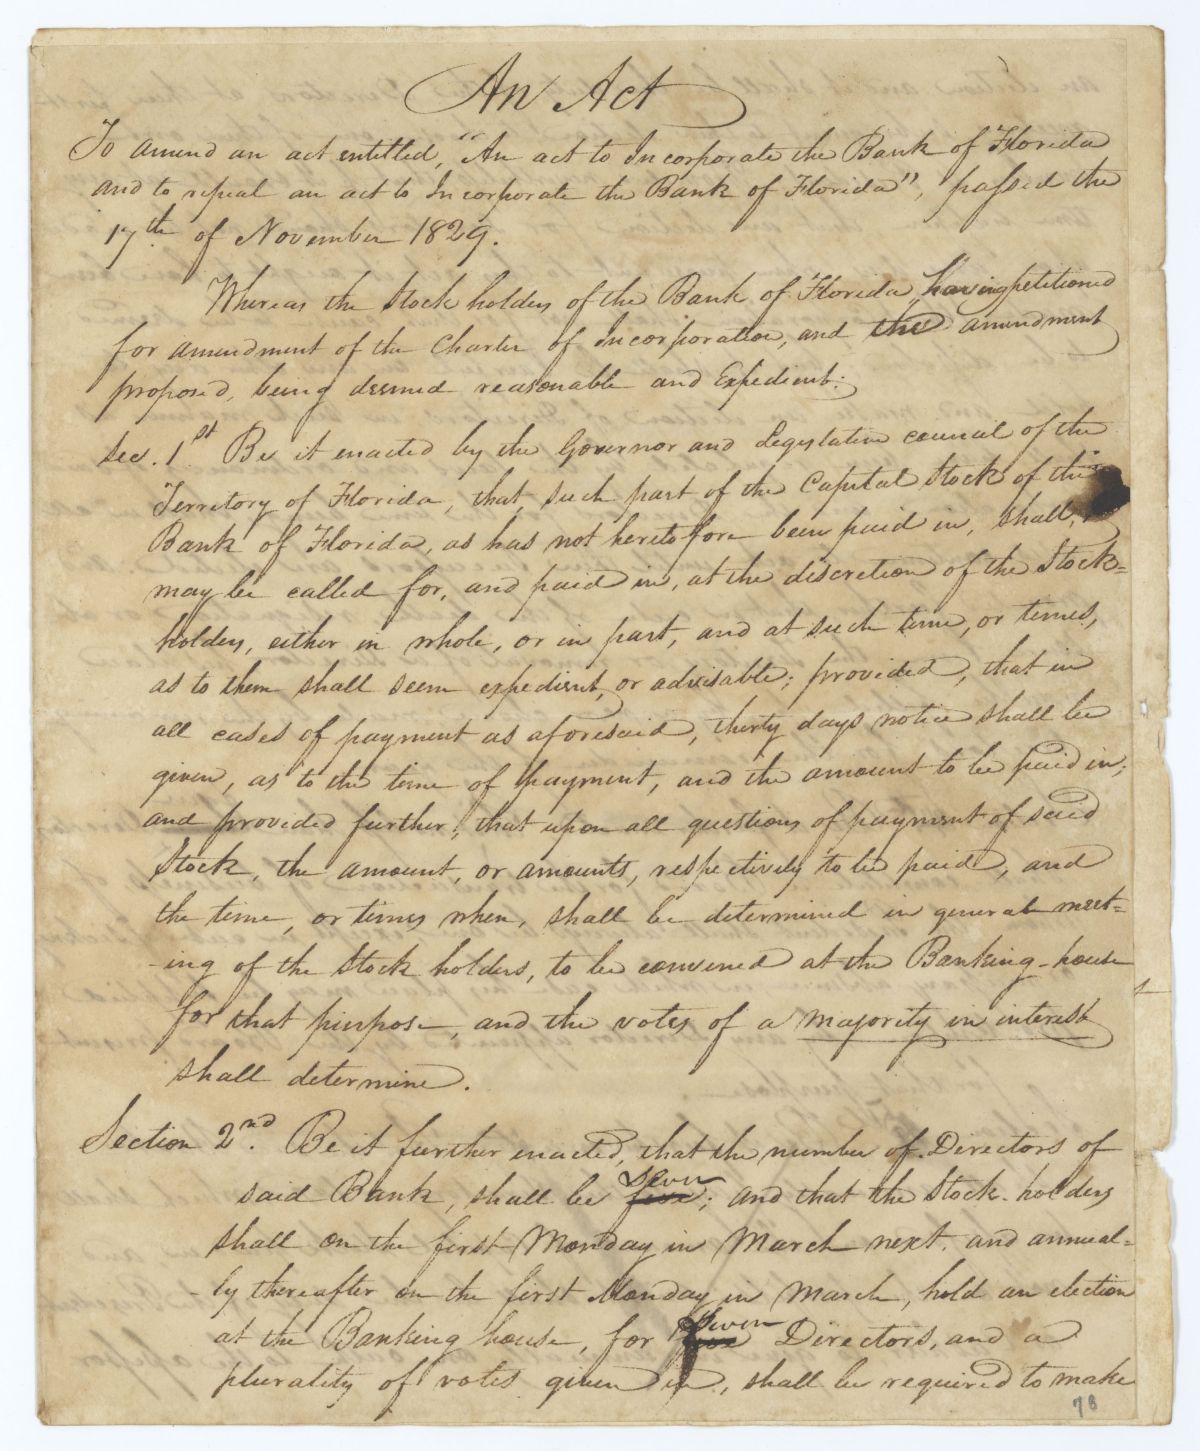 An Act
To amend an act entitled, "An act to Incorporate the Bank of Florida
and to repeal an act to Incorporate the Bank of Florida", passed the
17th of November 1829.
Whereas the Stock holders of the Bank of Florida having petitioned
for amendment of the Charter of Incorporation, and the amendment
proposed, being deemed reasonable and Expedient:
Sec. 1st. Be it enacted by the Governor and Legislative council of the
Territory of Florida, that, such part of the Capital Stock of the
Bank of Florida, as has not heretofore been paid in, shall,
may be called for, and paid in, at the discretion of the Stock=
holders, either in whole, or in part, and at such time, or times,
as to them shall seem expedient, or advisable; provided, that in
all cases of payment as aforesaid, thirty days notice shall be
given, as to the time of payment, and the amount to be paid in;
and provided further, that upon all questions of payment of said
Stock, the amount, or amounts, respectively to be paid, and
the time, or times when, shall be determined in general meet=
-ing of the Stock holders, to be convened at the Banking-house
for that purpose, and the votes of a majority in interest
shall determine.
Section 2nd. Be it further enacted, that the number of Directors of
said Bank, shall be five seven; and that the Stock-holders
shall on the first Monday in March next, and annual=
-ly thereafter on the first Monday in March, hold an election
at the Banking house, for five seven Directors, and a
plurality of votes given in, shall be required to make
78